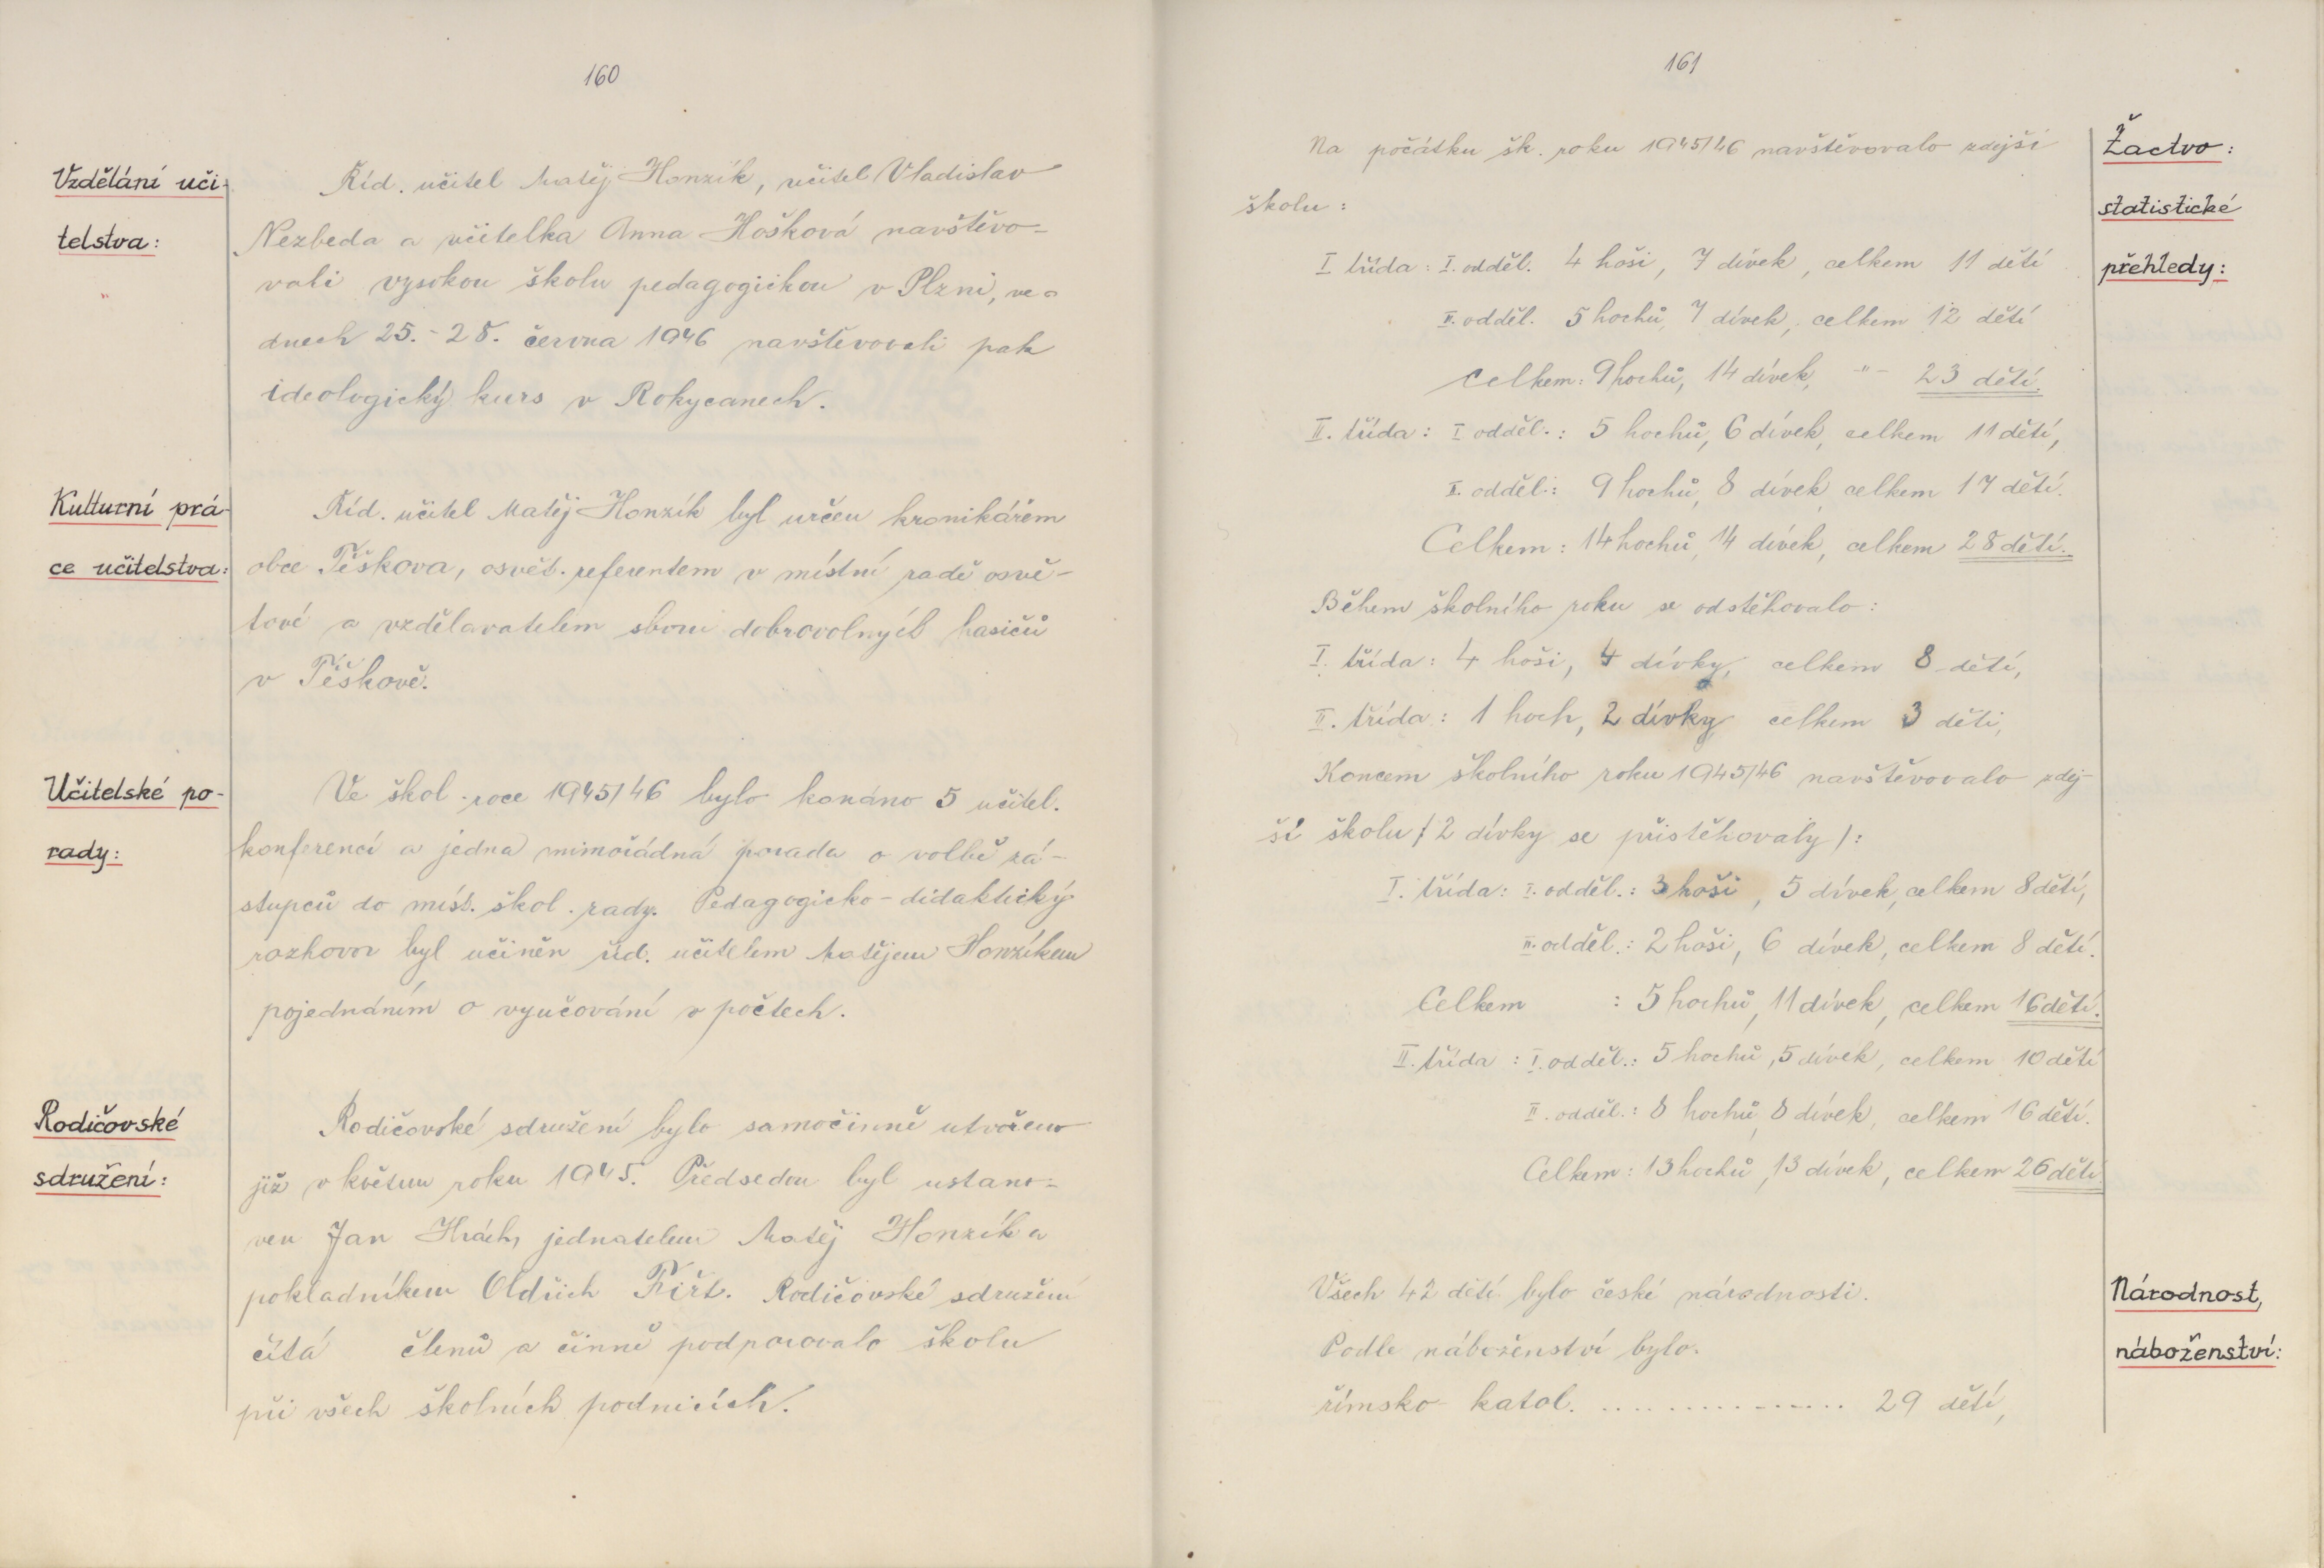 160
Vzdělání uči-
telstva:
Říd. učitel Matěj Honzík, učitel Vladislav
Nezbeda a učitelka Anna Hošková navštěvo-
vali vysokou školu pedagogickou v Plzni, ve
dnech 25.-28. června 1946 navštěvovali pak
ideologický kurs v Rokycanech.
Kulturní prá-
ce učitelstva:
Říd. učitel Matěj Honzík byl určen kronikářem
obce Těškova, osvět. referentem v místní radě osvě-
tové a vzdělavatelem sboru dobrovolných hasičů
v Těškově.
Učitelské po-
rady:
Ve škol. roce 1945/46 bylo konáno 5 učitel.
konferencí a jedna mimořádná porada o volbě zá-
stupců do míst. škol. rady. Pedagogicko-didaktický
rozhovor byl učiněn říd. učitelem Matějem Honzíkem
pojednáním o vyučování v počtech.
Rodičovské
sdružení:
Rodičovské sdružení bylo samočinně utvořeno
již v květnu roku 1945. Předsedou byl ustano-
ven Jan Hrách, jednatelem Matěj Honzík a
pokladníkem Oldřich . Rodičovské sdružení
čítá členů a činně podporovalo školu
při všech školních podnicích.
161
Žactvo:
statistické
přehledy:
Na počátku šk. roku 1945/46 navštěvovalo zdejší
školu:
I třída: I. odděl. 4 hoši, 7 dívek, celkem 11 dětí
II. odděl. 5 hochů, 7 dívek, celkem 12 dětí
Celkem: 9 hochů, 14 dívek, -"- 23 dětí.
II. třída: I odděl.: 5 hochů, 6 dívek, celkem 11 dětí,
II. odděl.: 9 hochů, 8 dívek, celkem 17 dětí.
Celkem: 14 hochů, 14 dívek, celkem 28 dětí.
Během školního roku se odstěhovalo:
I. třída: 4 hoši, 4 dívky, celkem 8 dětí,
II. třída: 1 hoch, 2 dívky celkem 3 děti,
Koncem školního roku 1945/46 navštěvovalo zdej-
ší školu /2 dívky se přistěhovaly/:
I. třída: I. odděl.: 3 hoši, 5 dívek, celkem 8 dětí,
II. odděl.: 2 hoši, 6 dívek, celkem 8 dětí.
Celkem : 5 hochů, 11 dívek, celkem 16 dětí.
II. třída: I. odděl.: 5 hochů, 5 dívek, celkem 10 dětí
II. odděl.: 8 hochů, 8 dívek, celkem 16 dětí.
Celkem: 13 hochů, 13 dívek, celkem 26 dětí.
Národnost,
náboženství:
Všech 42 dětí bylo české národnosti.
Podle náboženství bylo.
římsko-katol. ............... 29 dětí,